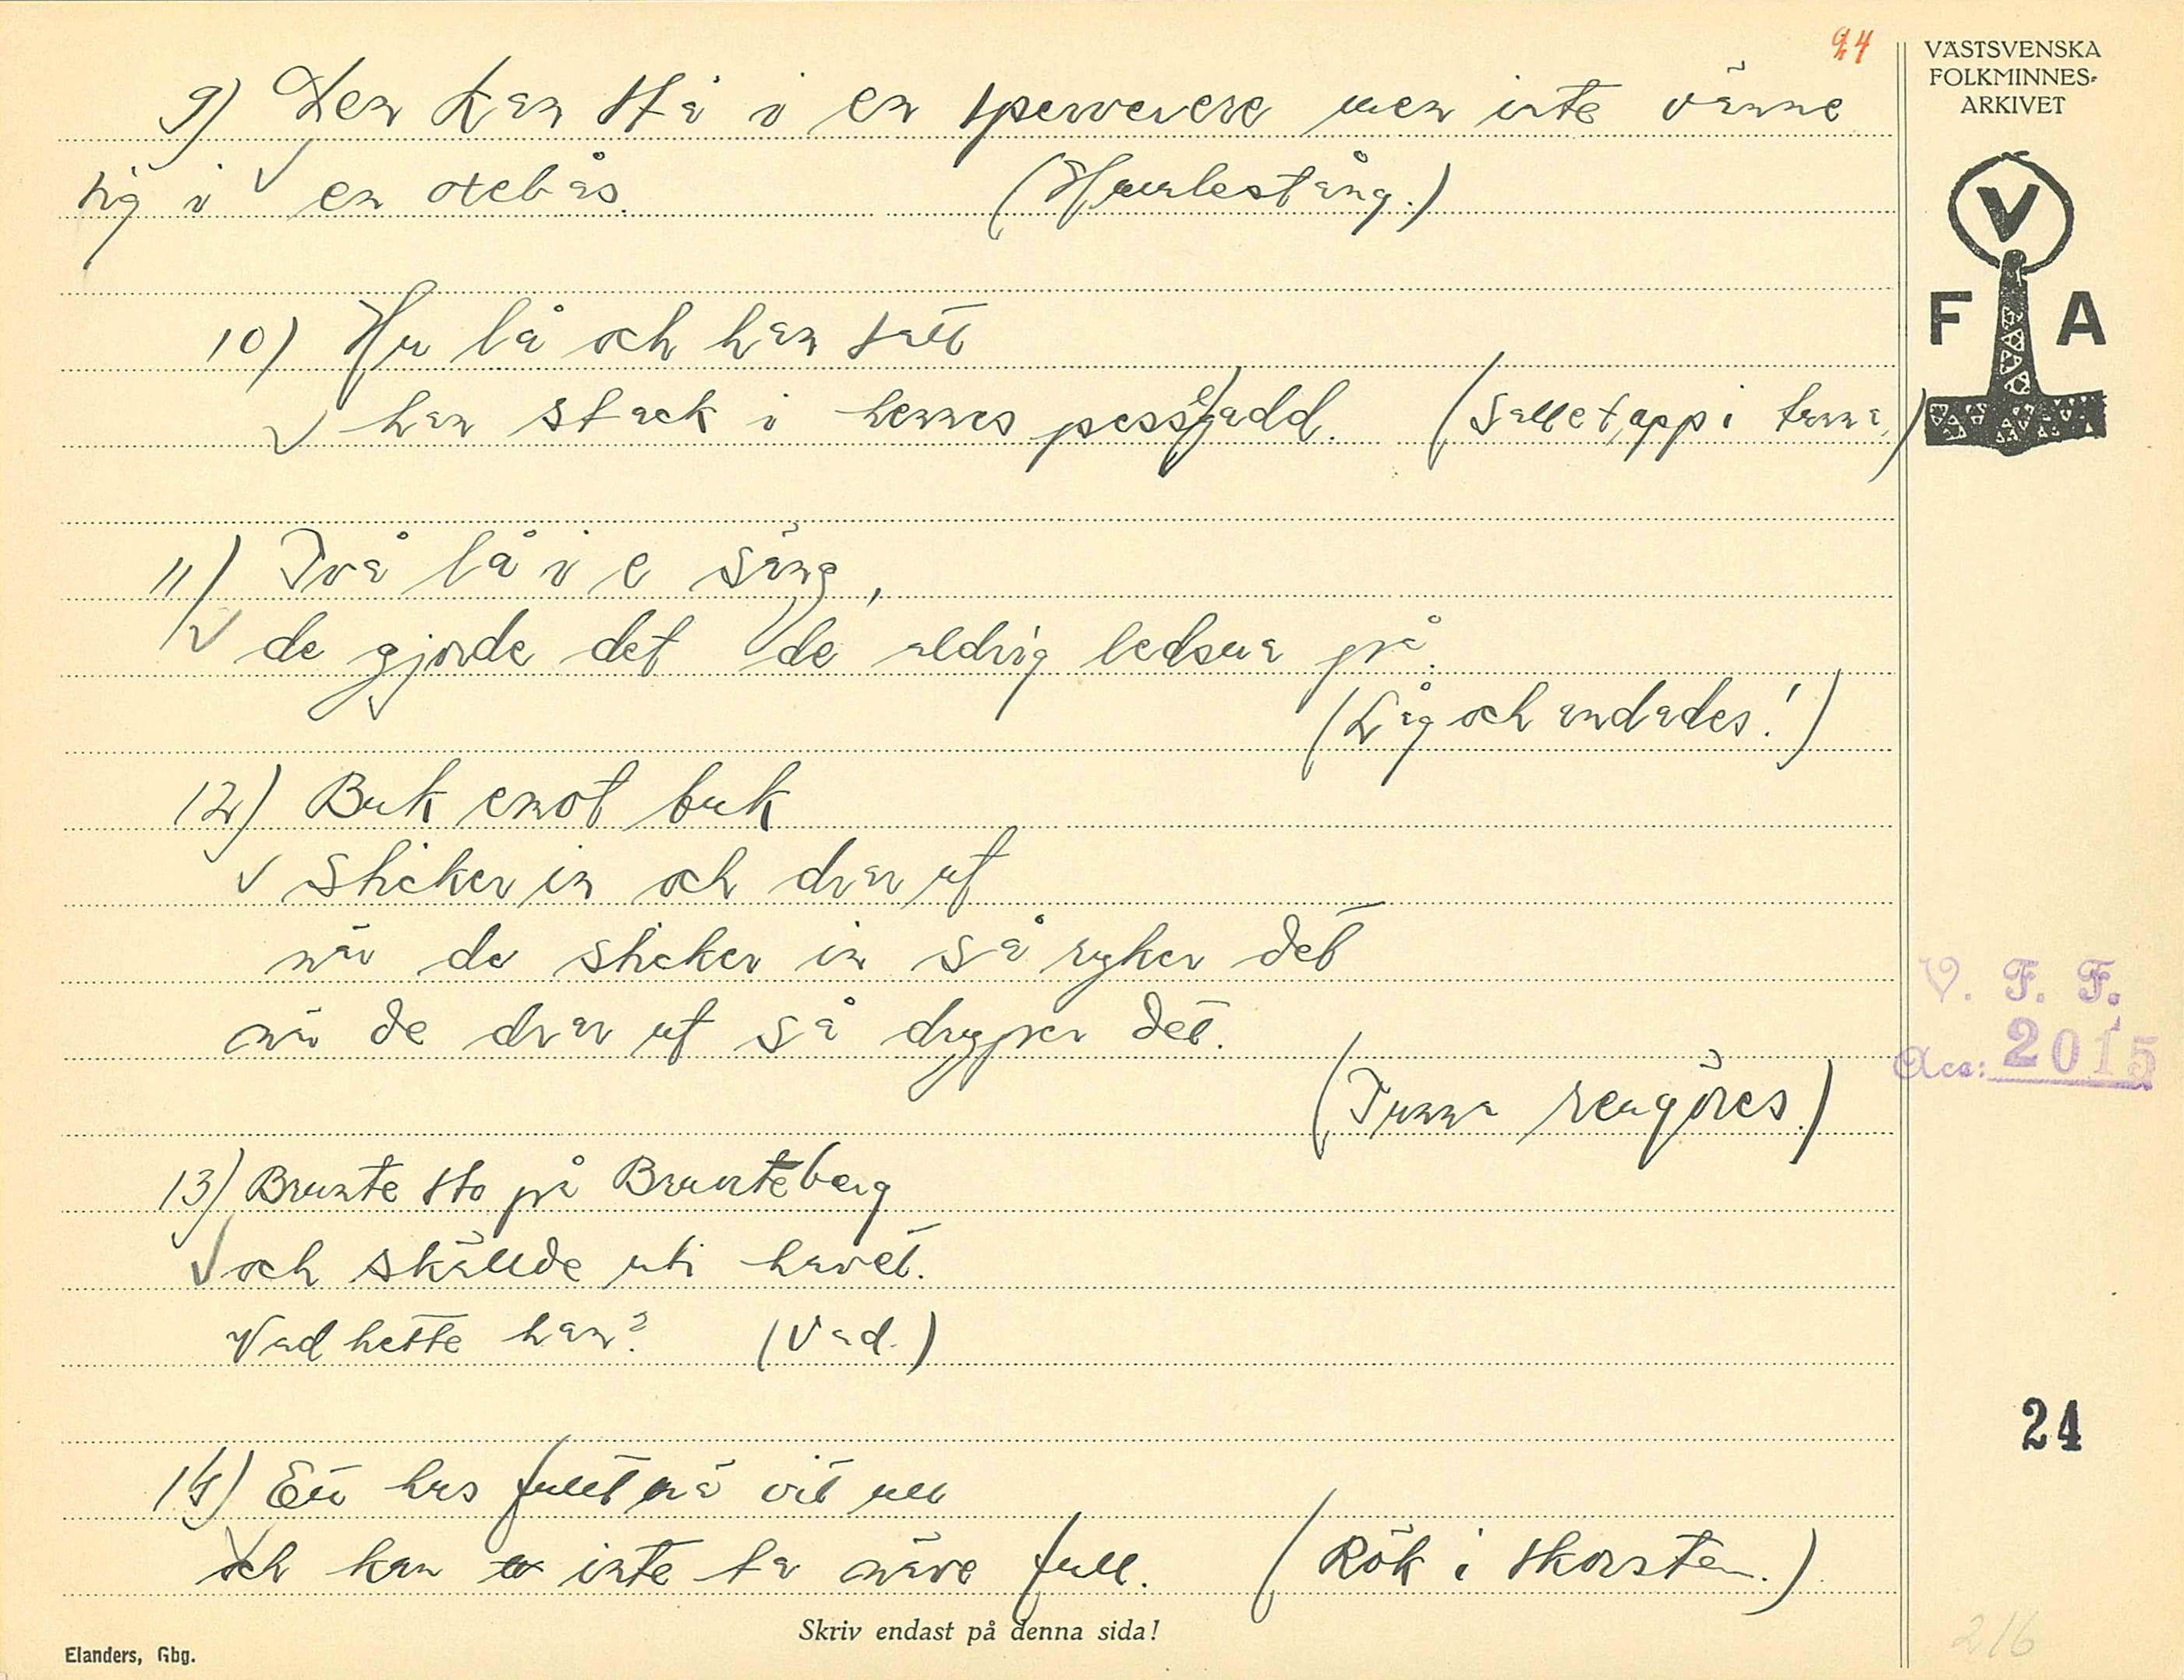 24
VÄSTSVENSKA
FOLKMINNES-
ARKIVET
9) Den kan stå i en spervevere men inte vänne
sig i en oxebås. (Humlestång.)
V
F A
10) Hu lå och han satt
han stack i hennes pessegadd. (Salletapp i tunna)
11) Två lå i e säng,
de gjorde det de aldrig ledsna på.
(Låg och andades!)
12) Buk emot buk
sticker in och drar ut
när de sticker in så ryker det
när de drar ut så dryper det.
(Tunna rengöres.)
V. F. F.
Acc: 2015
13) Brunte sto på Brunteberg
och skällde uti havet.
Vad hette han? (Vad.)
24
14) Ett hus fullt mä vit ull
och kan inte ta näve full. (Rök i skorsten.)
Skriv endast på denna sida!
Elanders, Gbg.
216